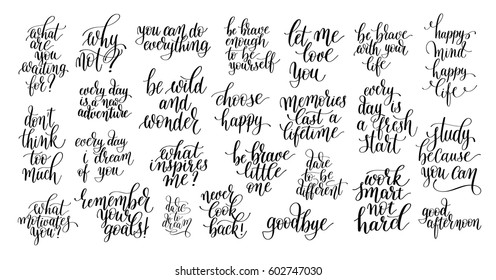 what
are
you
waiting
for?
why
not?
you can do
everything
be brave
enough
to be
yourself
let me
love
you
be brave
with your
life
happy
mind
happy
life
every day
is a new
adventure
be wild
and
wonder
choose
happy
memories
last a
lifetime
every
day
is a
fresh
start
don't
think
too
much
every day
i dream
of you
what
inspires
me?
be brave
little
one
dare
to be
different
study
because
you can
what
motivates
you?
remember
your
goals!
dare
to
dream
never
look
back!
goodbye
work
smart
not
hard
good
afternoon
shutterstock.com · 602747030